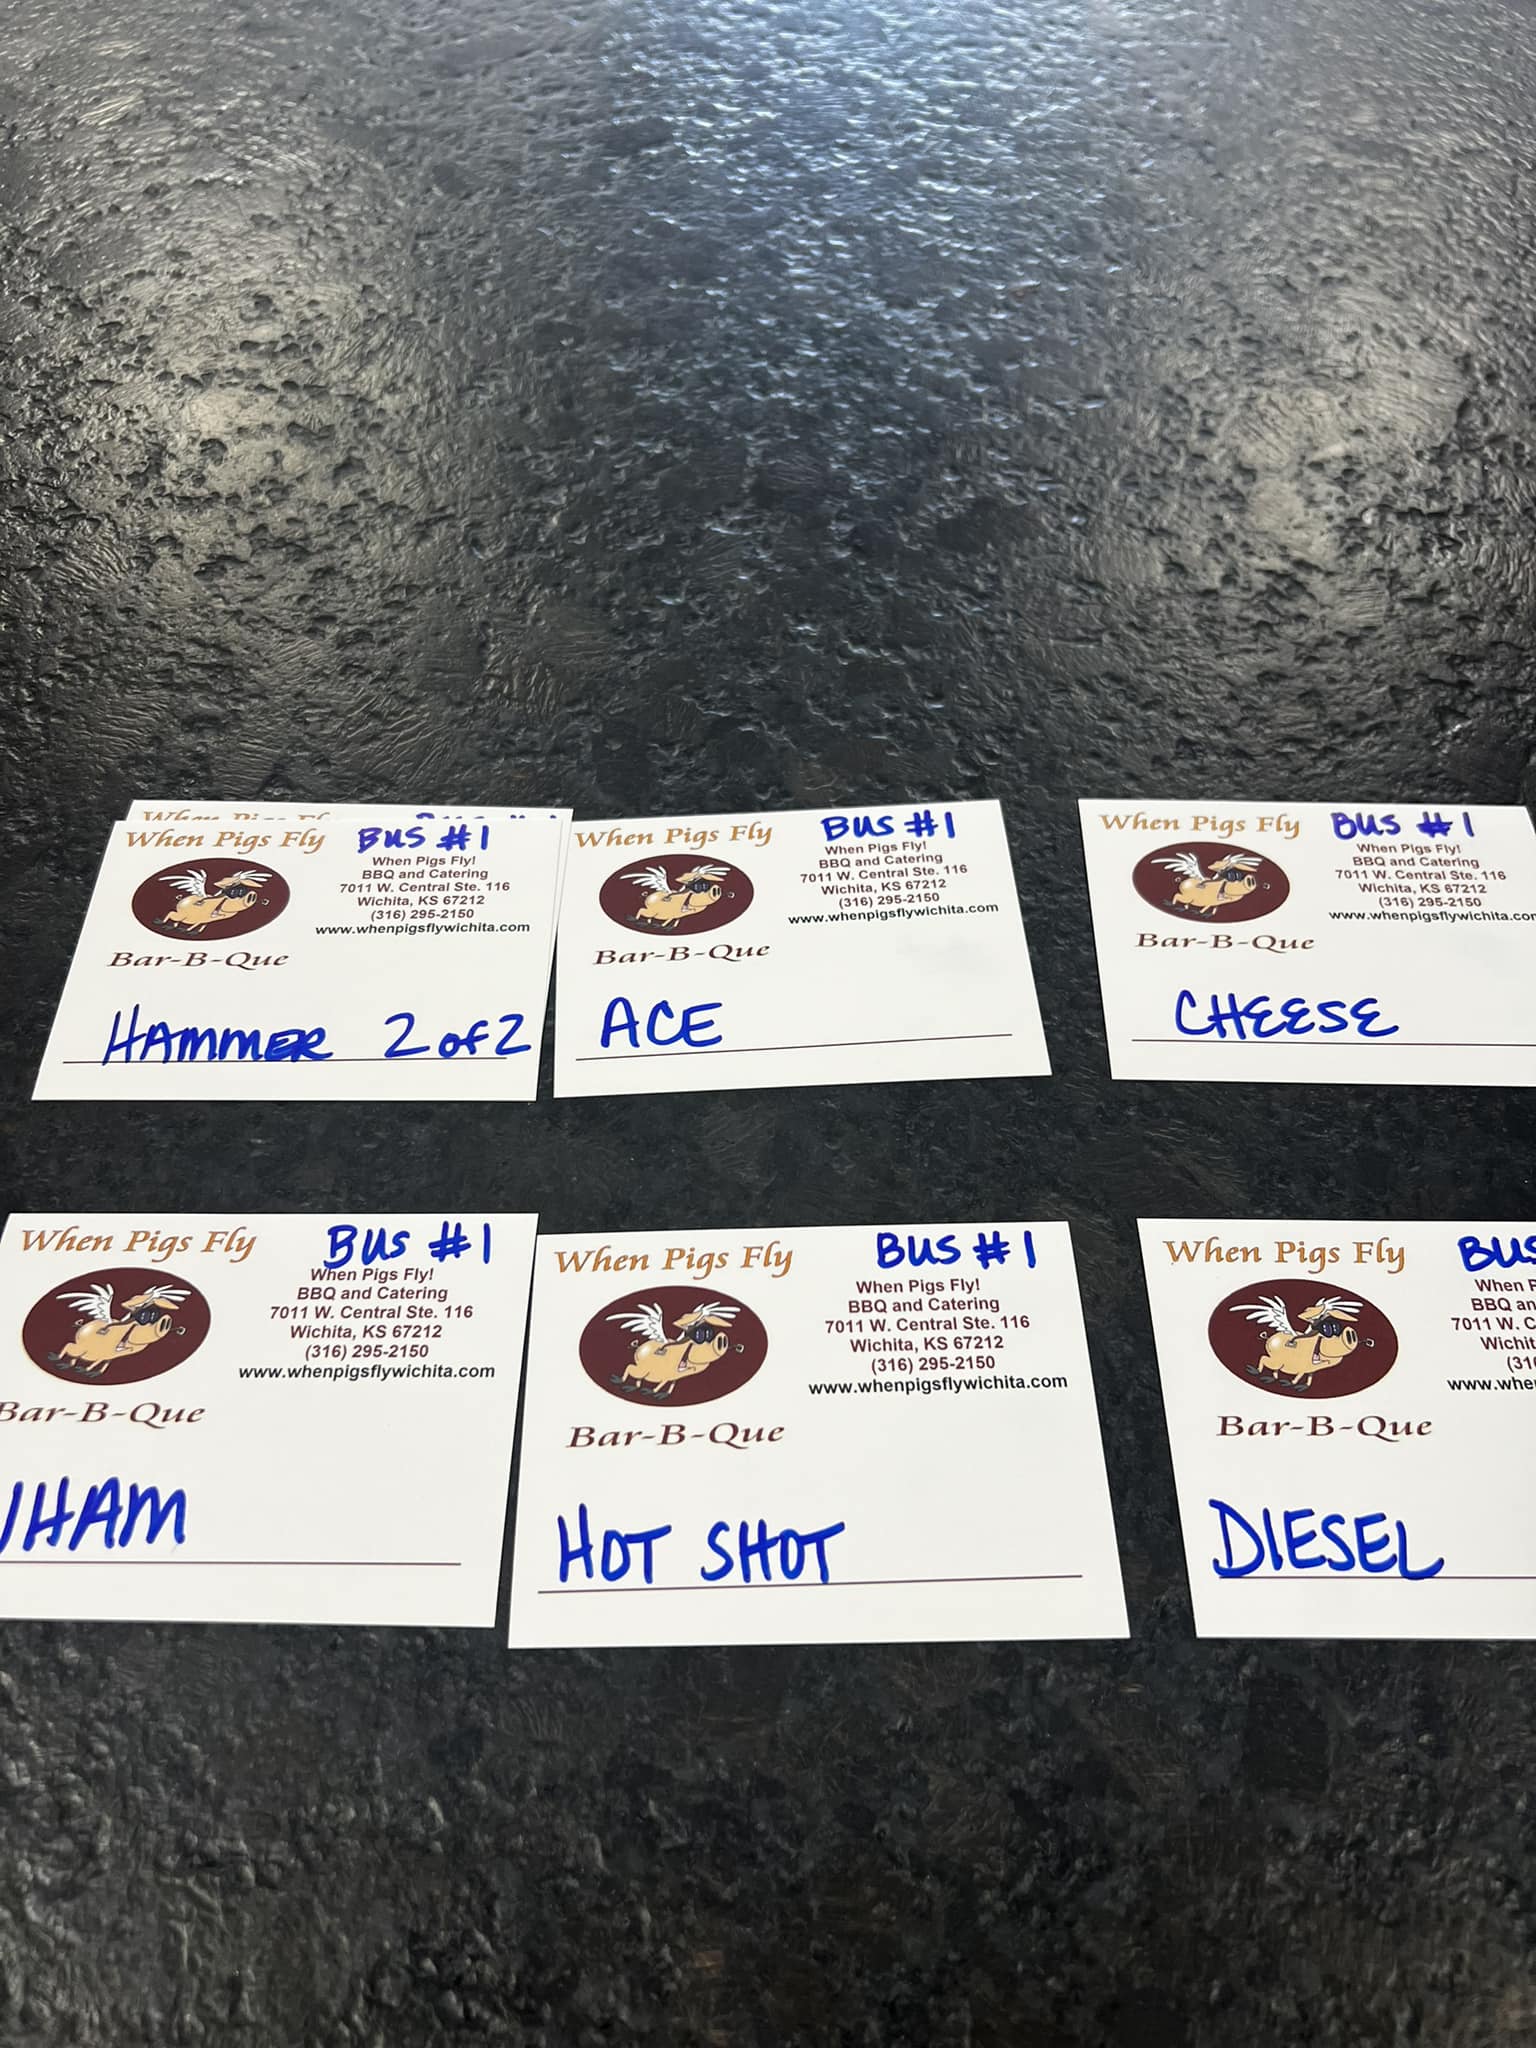 When Pigs Fly BUS #1
When Pigs Fly BUS #1
When Pigs Fly!
BBQ and Catering
7011 W. Central Ste. 116
Wichita, KS 67212
(316) 295-2150
www.whenpigsflywichita.com
Bar-B-Que
HAMMER 2 of 2
When Pigs Fly BUS #1
When Pigs Fly!
BBQ and Catering
7011 W. Central Ste. 116
Wichita, KS 67212
(316) 295-2150
www.whenpigsflywichita.com
Bar-B-Que
ACE
When Pigs Fly BUS #1
When Pigs Fly!
BBQ and Catering
7011 W. Central Ste. 116
Wichita, KS 67212
(316) 295-2150
www.whenpigsflywichita.co
Bar-B-Que
CHEESE
When Pigs Fly BUS #1
When Pigs Fly!
BBQ and Catering
7011 W. Central Ste. 116
Wichita, KS 67212
(316) 295-2150
www.whenpigsflywichita.com
Bar-B-Que
HAM
When Pigs Fly BUS #1
When Pigs Fly!
BBQ and Catering
7011 W. Central Ste. 116
Wichita, KS 67212
(316) 295-2150
www.whenpigsflywichita.com
Bar-B-Que
HOT SHOT
When Pigs Fly BUS
When P
BBQ an
7011 W. C
Wichit
(31
www.whe
Bar-B-Que
DIESEL